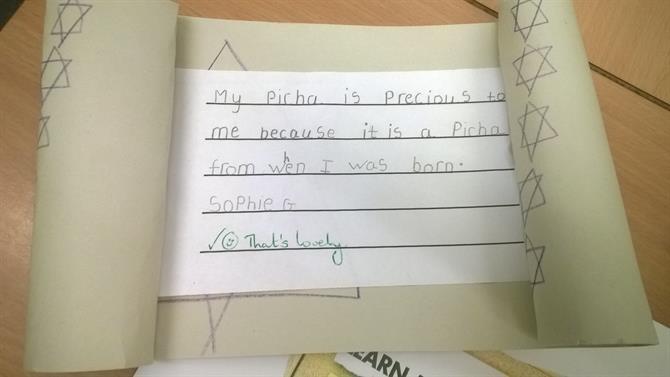 My Picha is Precious to
me because it is a Picha
from when I was born.
Sophie G
✓☺ That's lovely
LEARN